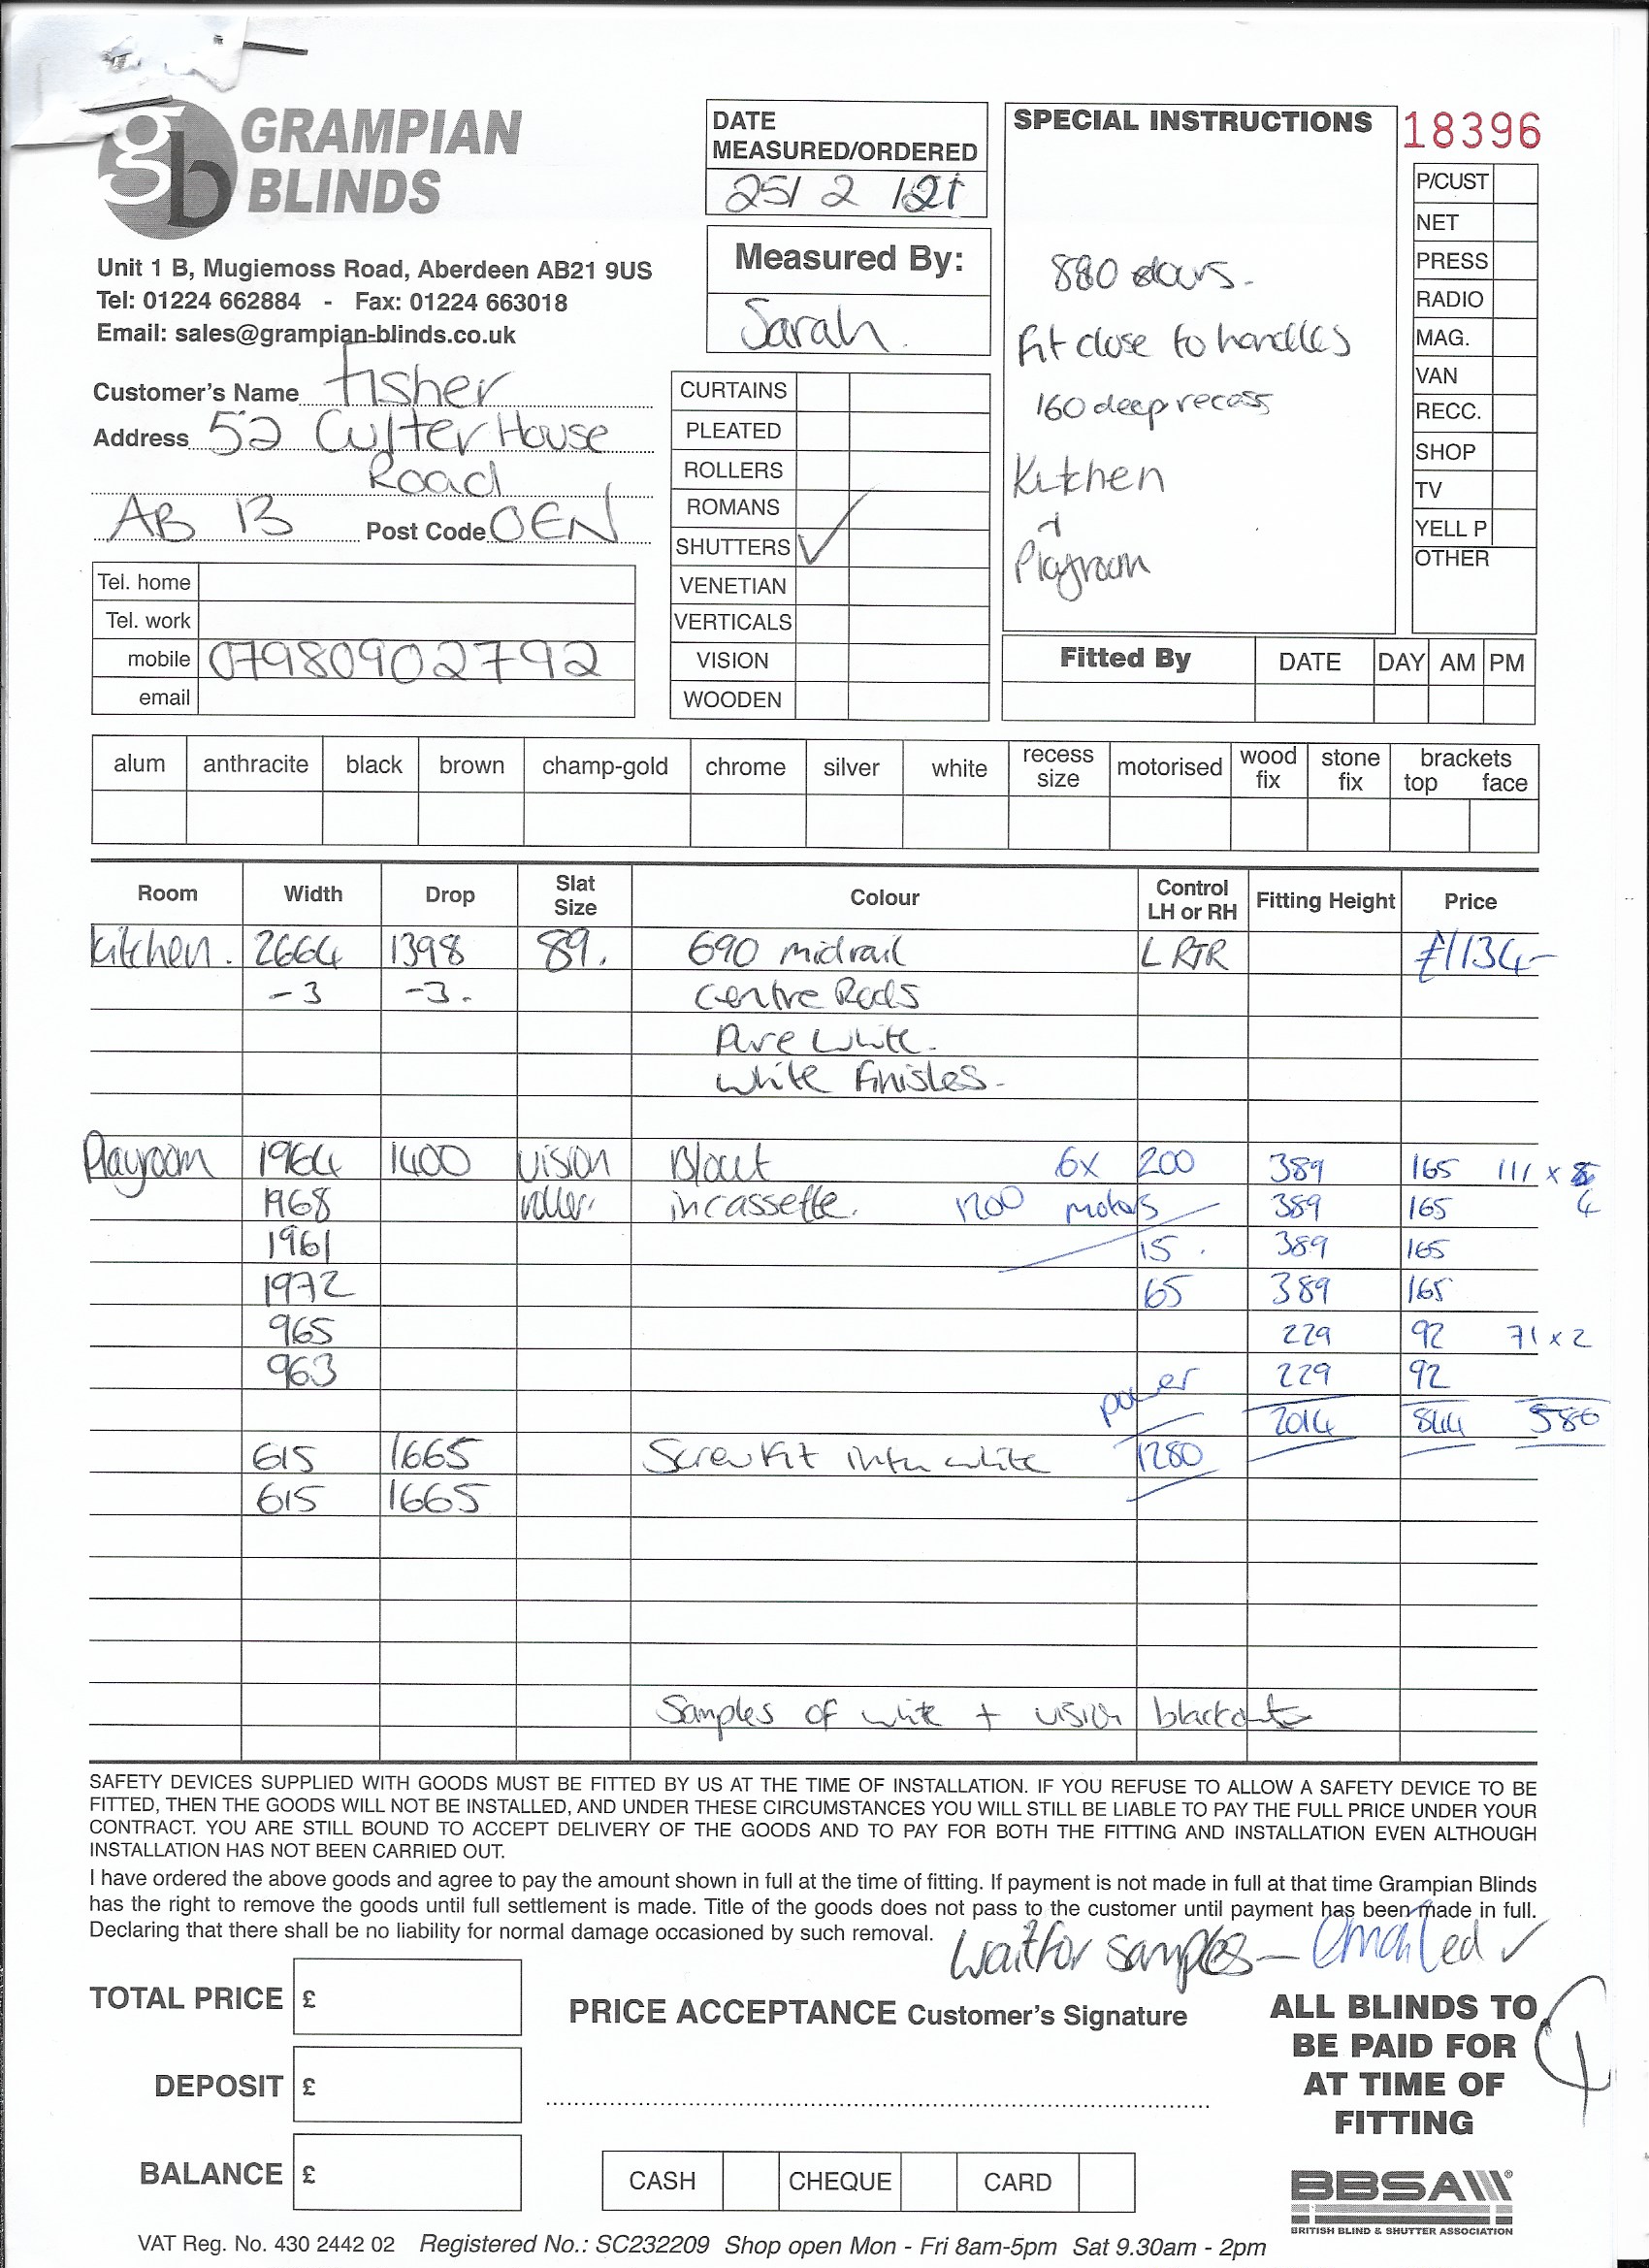 gb GRAMPIAN BLINDS
Unit 1 B, Mugiemoss Road, Aberdeen AB21 9US
Tel: 01224 662884 - Fax: 01224 663018
Email: sales@grampian-blinds.co.uk
Customer's Name Fisher
Address 52 Culter House
Road
AB 13 Post Code 0EN
Tel. home
Tel. work
mobile 07980902792
email
DATE MEASURED/ORDERED
25/ 2 /21
Measured By:
Sarah.
CURTAINS
PLEATED
ROLLERS
ROMANS
SHUTTERS ✓
VENETIAN
VERTICALS
VISION
WOODEN
SPECIAL INSTRUCTIONS
880
fit close to handles
160 deep recess
Kitchen
+
Playroom
18396
P/CUST
NET
PRESS
RADIO
MAG.
VAN
RECC.
SHOP
TV
YELL P
OTHER
Fitted By DATE DAY AM PM
alum anthracite black brown champ-gold chrome silver white recess size motorised wood fix stone fix brackets top face
Room Width Drop Slat Size Colour Control LH or RH Fitting Height Price
Kitchen. 2664 1398 89. 690 midrail L RTR £1134-
-3 -3. Centre Rods
Pure White.
White Finishes.
Playroom 1964 1400 vision Blout 6x 200 389 165 111 x 4
1968 roller. in cassette. 1200 motors 389 165
1961 15. 389 165
1972 65 389 165
965 229 92 71 x 2
963 power 229 92
2014 844 586
615 1665 Screw Fit white 1280
615 1665
Samples of white + vision blackout
SAFETY DEVICES SUPPLIED WITH GOODS MUST BE FITTED BY US AT THE TIME OF INSTALLATION. IF YOU REFUSE TO ALLOW A SAFETY DEVICE TO BE
FITTED, THEN THE GOODS WILL NOT BE INSTALLED, AND UNDER THESE CIRCUMSTANCES YOU WILL STILL BE LIABLE TO PAY THE FULL PRICE UNDER YOUR
CONTRACT. YOU ARE STILL BOUND TO ACCEPT DELIVERY OF THE GOODS AND TO PAY FOR BOTH THE FITTING AND INSTALLATION EVEN ALTHOUGH
INSTALLATION HAS NOT BEEN CARRIED OUT.
I have ordered the above goods and agree to pay the amount shown in full at the time of fitting. If payment is not made in full at that time Grampian Blinds
has the right to remove the goods until full settlement is made. Title of the goods does not pass to the customer until payment has been made in full.
Declaring that there shall be no liability for normal damage occasioned by such removal.
Wait for samples - emailed ✓
TOTAL PRICE £
DEPOSIT £
BALANCE £
PRICE ACCEPTANCE Customer's Signature
CASH CHEQUE CARD
ALL BLINDS TO
BE PAID FOR
AT TIME OF
FITTING
BBSA
BRITISH BLIND & SHUTTER ASSOCIATION
VAT Reg. No. 430 2442 02 Registered No.: SC232209 Shop open Mon - Fri 8am-5pm Sat 9.30am - 2pm